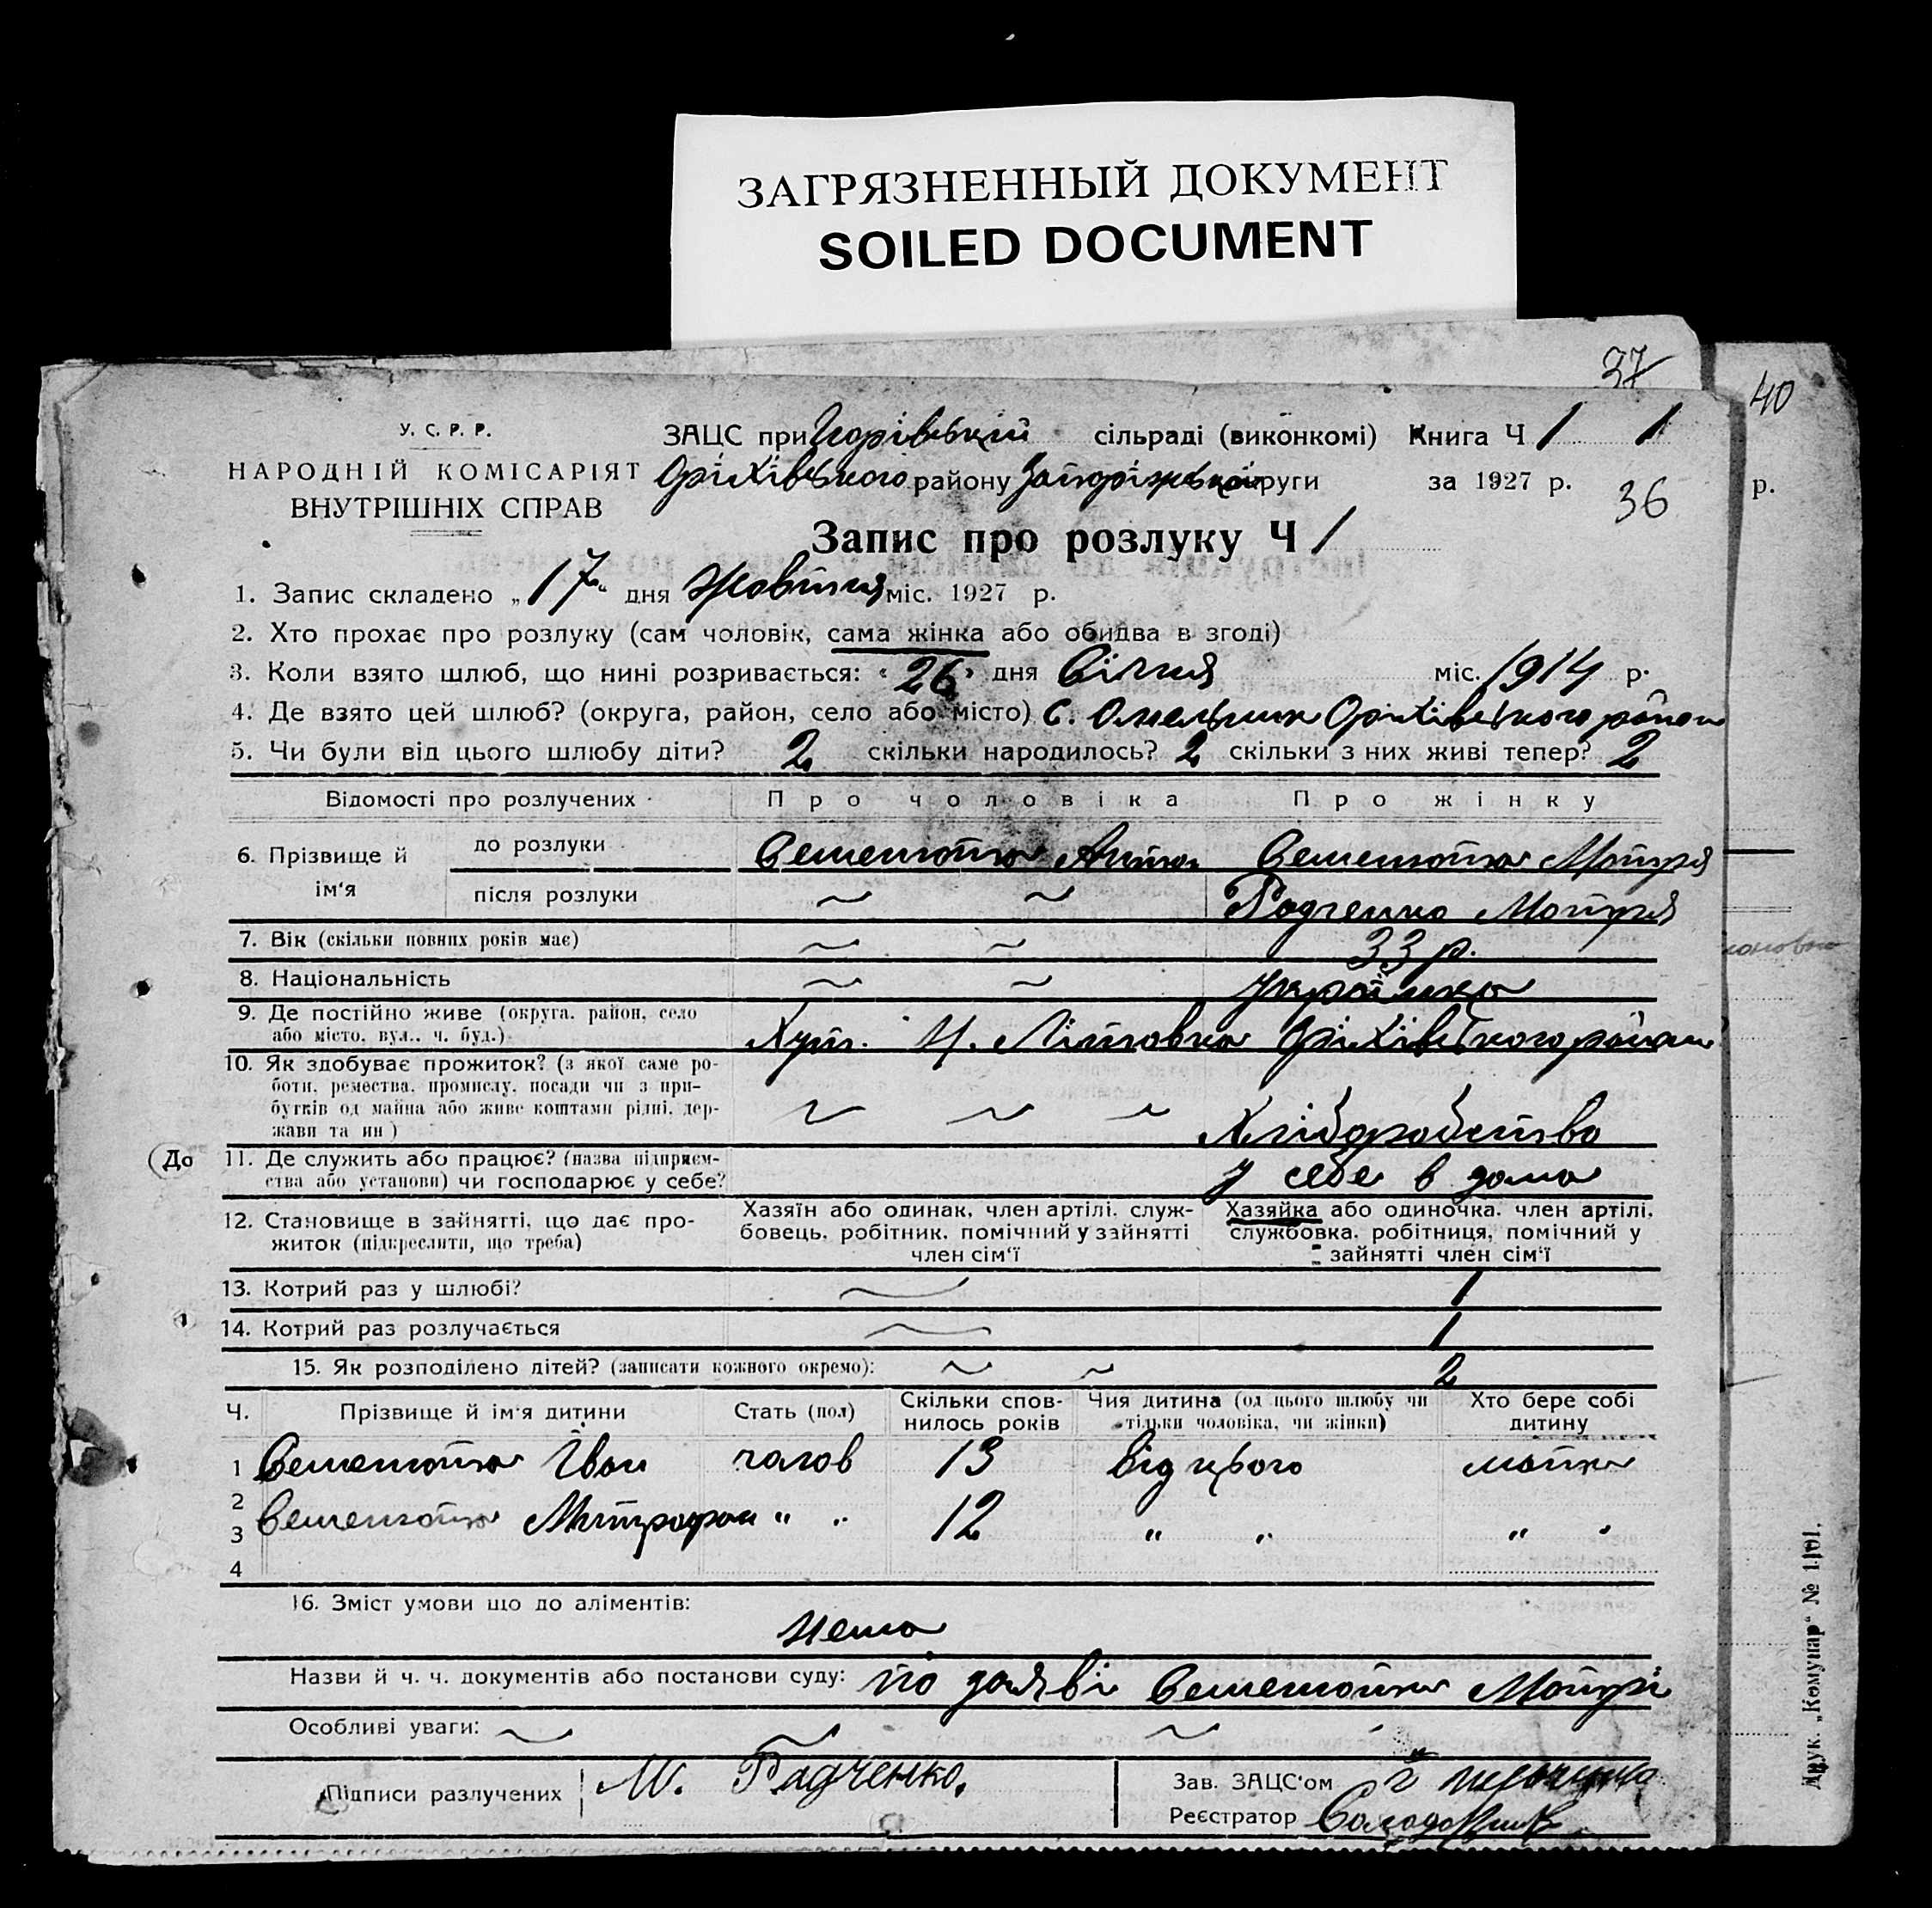 ЗАГРЯЗНЕННЫЙ ДОКУМЕНТ
SOILED DOCUMENT
37
40
У. С. Р. Р.
НАРОДНІЙ КОМІСАРІЯТ
ВНУТРІШНІХ СПРАВ
ЗАЦС при сільраді (виконкомі) Книга Ч 1 1
Оріхівського району Запорізької округи за 1927 р. 36
р.
Запис про розлуку Ч 1
1. Запис складено „17" дня Жовтня міс. 1927 р.
2. Хто прохає про розлуку (сам чоловік, сама жінка або обидва в згоді)
3. Коли взято шлюб, що нині розривається: «26» дня Січня міс. 1914 р.
4. Де взято цей шлюб? (округа, район, село або місто) с. Омельник Оріхівського району
5. Чи були від цього шлюбу діти? 2 скільки народилось? 2 скільки з них живі тепер? 2
Відомості про розлучених Про чоловіка Про жінку
6. Прізвище й ім'я до розлуки Антон Мотря
після розлуки ~ ~ Радченко Мотря
7. Вік (скільки повних років має) ~ ~ 33 р.
8. Національність ~ ~ українка
9. Де постійно живе (округа, район, село
або місто, вул., ч. буд.) Хут. Оріхівського району
10. Як здобуває прожиток? (з якої саме ро-
боти, ремества, промислу, посади чи з при-
бутків од майна або живе коштами рідні, дер-
жави та ин) ~ ~ ~ Хліборобство
До
11. Де служить або працює? (назва підприєм-
ства або установи) чи господарює у себе? у себе в дома
12. Становище в зайнятті, що дає про-
житок (підкреслити, що треба)
Хазяїн або одинак, член артілі, служ-
бовець, робітник, помічний у зайнятті
член сім'ї
Хазяйка або одиночка, член артілі,
службовка, робітниця, помічний у
зайнятті член сім'ї
13. Котрий раз у шлюбі? ~ 1
14. Котрий раз розлучається ~ 1
15. Як розподілено дітей? (записати кожного окремо): ~ ~ 2
Ч. Прізвище й ім'я дитини Стать (пол) Скільки спов-
нилось років Чия дитина (од цього шлюбу чи
тільки чоловіка, чи жінки) Хто бере собі
дитину
1 Іван чолов 13 від цього мати
2
3 Митрофан " " 12 " " " "
4
16. Зміст умови що до аліментів:
Нема
Назви й ч. ч. документів або постанови суду: по заяві Мотрі
Особливі уваги: ~ ~ ~
Підписи разлучених М. Радченко.
Зав. ЗАЦС'ом
Реєстратор
Друк. „Комунар" № 1101.